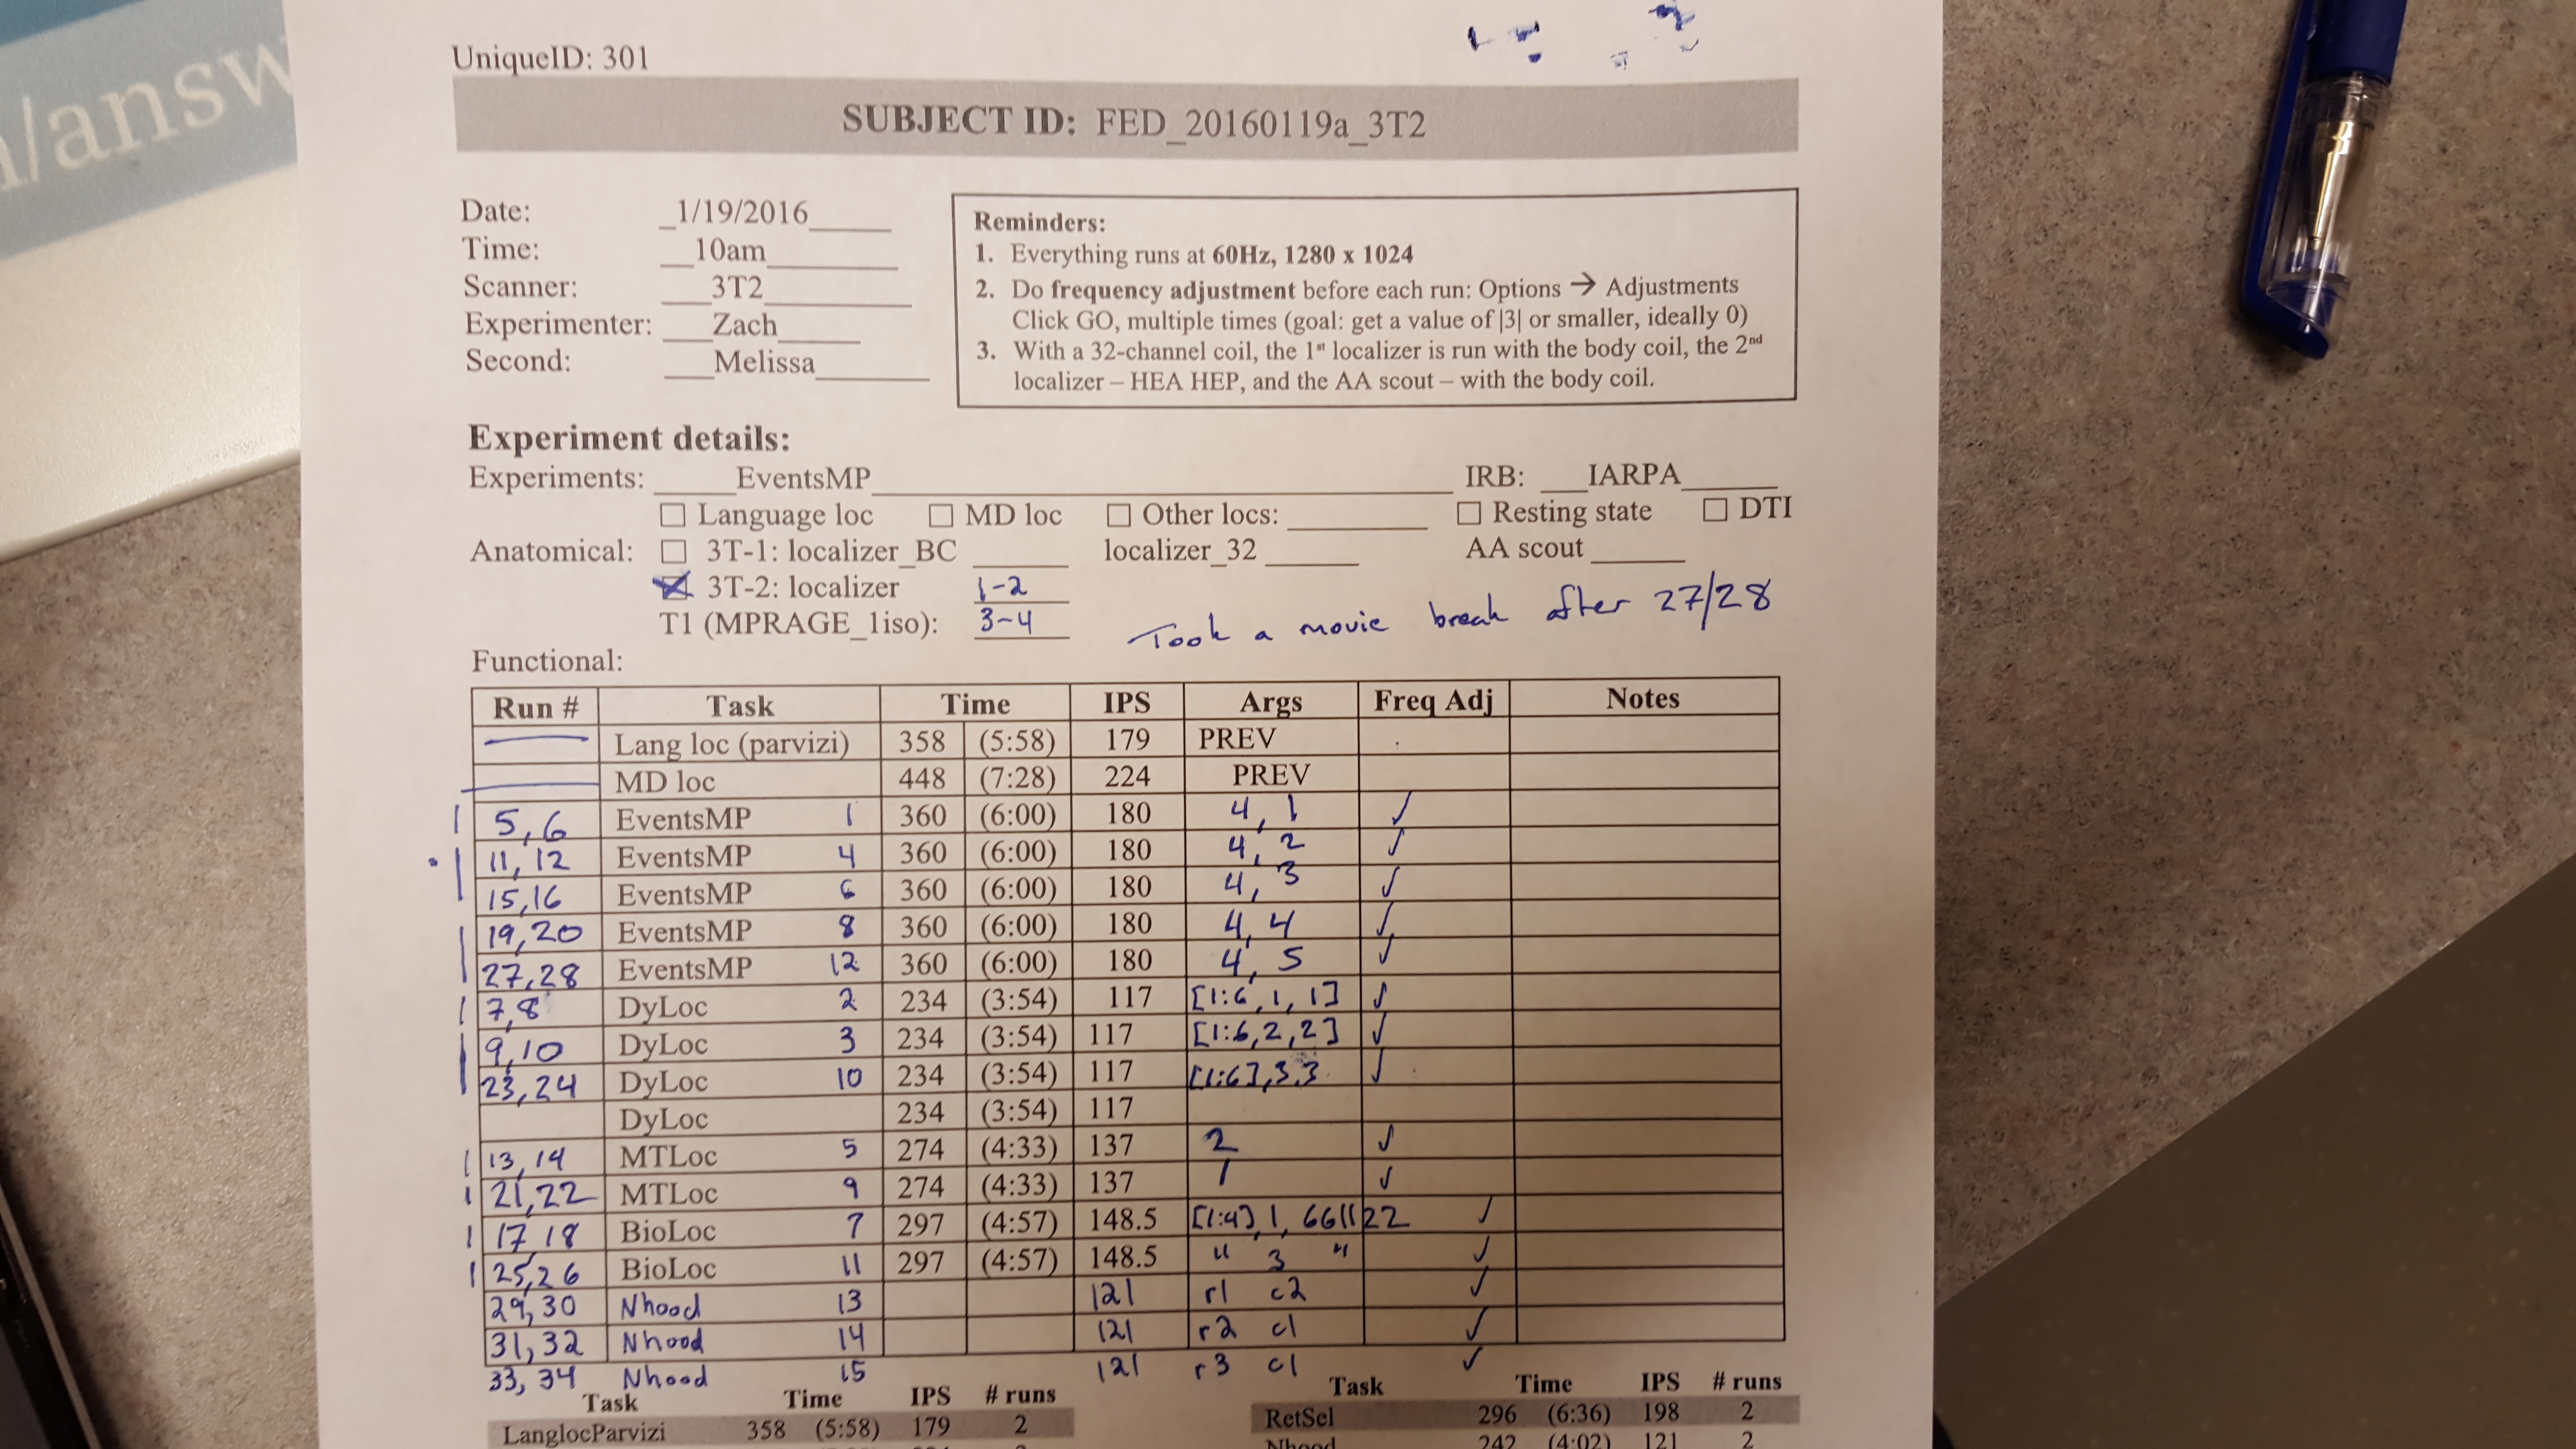 /answ
UniqueID: 301
SUBJECT ID: FED_20160119a_3T2
Date: _1/19/2016_____
Time: __10am________
Scanner: ___3T2_________
Experimenter: ___Zach_____
Second: ___Melissa_______
Reminders:
1. Everything runs at 60Hz, 1280 x 1024
2. Do frequency adjustment before each run: Options → Adjustments
Click GO, multiple times (goal: get a value of |3| or smaller, ideally 0)
3. With a 32-channel coil, the 1st localizer is run with the body coil, the 2nd
localizer – HEA HEP, and the AA scout – with the body coil.
Experiment details:
Experiments: _____EventsMP_____ IRB: ___IARPA______
☐ Language loc ☐ MD loc ☐ Other locs: ________ ☐ Resting state ☐ DTI
Anatomical: ☐ 3T-1: localizer_BC ______ localizer_32 ______ AA scout ______
☒ 3T-2: localizer 1-2
T1 (MPRAGE_1iso): 3-4
Took a movie break after 27/28
Functional:
Run # Task Time IPS Args Freq Adj Notes
— Lang loc (parvizi) 358 (5:58) 179 PREV
— MD loc 448 (7:28) 224 PREV
5,6 EventsMP 1 360 (6:00) 180 4, 1 ✓
11, 12 EventsMP 4 360 (6:00) 180 4, 2 ✓
15,16 EventsMP 6 360 (6:00) 180 4, 3 ✓
19,20 EventsMP 8 360 (6:00) 180 4, 4 ✓
27,28 EventsMP 12 360 (6:00) 180 4, 5 ✓
7,8 DyLoc 2 234 (3:54) 117 [1:6, 1, 1] ✓
9,10 DyLoc 3 234 (3:54) 117 [1:6,2,2] ✓
23,24 DyLoc 10 234 (3:54) 117 [1:6],3,3 ✓
DyLoc 234 (3:54) 117
13,14 MTLoc 5 274 (4:33) 137 2 ✓
21,22 MTLoc 9 274 (4:33) 137 1 ✓
17,18 BioLoc 7 297 (4:57) 148.5 [1:4], 1, 661122 ✓
25,26 BioLoc 11 297 (4:57) 148.5 " 3 " ✓
29,30 Nhood 13 121 r1 c2 ✓
31,32 Nhood 14 121 r2 c1 ✓
33, 34 Nhood 15 121 r3 c1 ✓
Task Time IPS # runs Task Time IPS # runs
LanglocParvizi 358 (5:58) 179 2 RetSel 296 (6:36) 198 2
Nhood 242 (4:02) 121 2